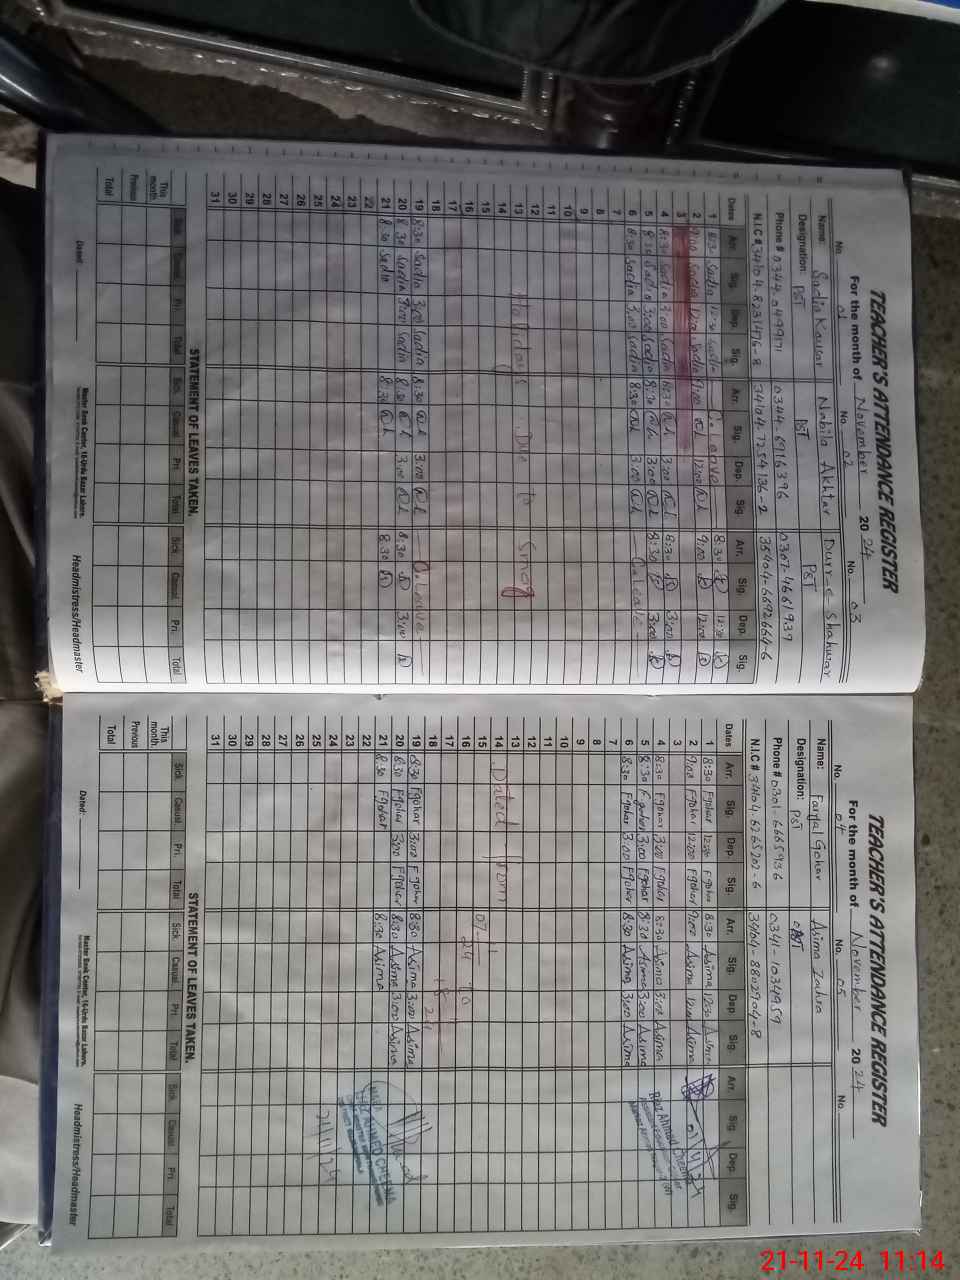 TEACHER'S ATTENDANCE REGISTER
For the month of November 2024
No. 01 No. 02 No. 03
Name: Sadia Kousar Nabila Akhtar Durr-e-Shahwar
Designation: PST PST PST
Phone # 0344-0499171 0344-6916396 0307-4661939
N.I.C # 34104-8231476-8 34104-7254136-2 35404-6692664-6
Dates Arr. Sig. Dep. Sig. Arr. Sig. Dep. Sig. Arr. Sig. Dep. Sig.
1 8:30 Sadia 12:30 Sadia C. Leave 8:30 12:30
2 9:00 Sadia 12:00 Sadia 9:00 12:00 9:00 12:00
3
4 8:30 Sadia 3:00 Sadia 8:30 3:00 8:30 3:00
5 8:30 Sadia 3:00 Sadia 8:30 3:00 8:30 3:00
6 8:30 Sadia 3:00 Sadia 8:30 3:00 C. Leave
7
8
9
10
11
12
13 Holidays Due to Smog
14
15
16
17
18
19 8:30 Sadia 3:00 Sadia 8:30 3:00 C. Leave
20 8:30 Sadia 3:00 Sadia 8:30 3:00 8:30 3:00
21 8:30 Sadia 8:30 8:30
22
23
24
25
26
27
28
29
30
31
STATEMENT OF LEAVES TAKEN.
Sick Casual Pri. Total Sick Casual Pri. Total Sick Casual Pri. Total
This month.
Previous
Total
Dated:
Master Book Center, 16-Urdu Bazar Lahore.
Headmistress/Headmaster
TEACHER'S ATTENDANCE REGISTER
For the month of November 2024
No. 04 No. 05 No.
Name: Gohar Asima Zahra
Designation: PST PST
Phone # 0301-6665936 0341-1034959
N.I.C # 34104-6265202-6 34104-8802904-8
Dates Arr. Sig. Dep. Sig. Arr. Sig. Dep. Sig. Arr. Sig. Dep. Sig.
1 8:30 Fgohar 12:30 Fgohar 8:30 Asima 12:30 Asima
2 9:00 Fgohar 12:00 Fgohar 9:00 Asima 12:00 Asima
3
4 8:30 Fgohar 3:00 Fgohar 8:30 Asima 3:00 Asima
5 8:30 Fgohar 3:00 Fgohar 8:30 Asima 3:00 Asima
6 8:30 Fgohar 3:00 Fgohar 8:30 Asima 3:00 Asima
7
8
9
10
11
12
13
14 Dated From
15 07-11-24 To
16
17
18
19 8:30 Fgohar 3:00 Fgohar 8:30 Asima 3:00 Asima
20 8:30 Fgohar 3:00 Fgohar 8:30 Asima 3:00 Asima
21 8:30 Fgohar 8:30 Asima
22
23
24
25 21/11/24
26
27
28
29
30
31
STATEMENT OF LEAVES TAKEN.
Sick Casual Pri. Total Sick Casual Pri. Total Sick Casual Pri. Total
This month.
Previous
Total
Dated:
Master Book Center, 16-Urdu Bazar Lahore.
Headmistress/Headmaster
AHMED CHEEMA
21-11-24 11:14